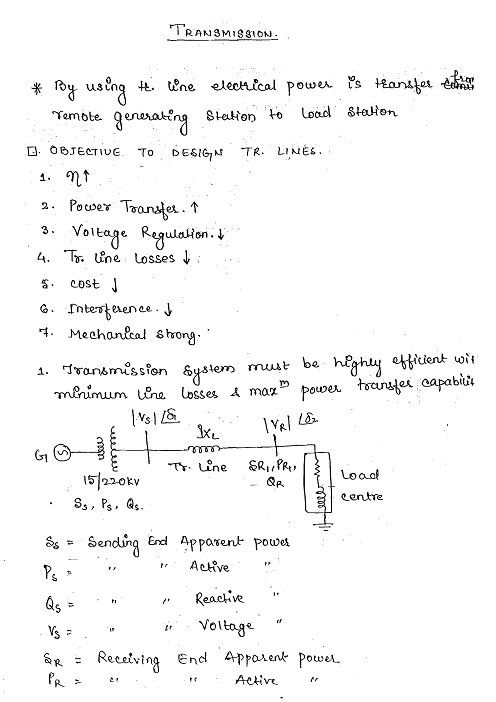 TRANSMISSION.
* By using tr. line electrical power is transfer from
remote generating Station to Load Station
OBJECTIVE TO DESIGN TR. LINES.
1. η↑
2. Power Transfer. ↑
3. Voltage Regulation. ↓
4. Tr. line losses ↓
5. cost ↓
6. Interference. ↓
7. Mechanical strong.
1. Transmission System must be highly efficient wit
minimum line losses & max^m power transfer capabilit
|Vs| ∠δ1 |VR| ∠δ2
jXL
G
Tr. Line SR, PR,
QR
Load
centre
15/220KV
Ss, Ps, Qs.
Ss = Sending End Apparent power
Ps = " " Active "
Qs = " " Reactive "
Vs = " " Voltage "
SR = Receiving End Apparent power
PR = " " Active "